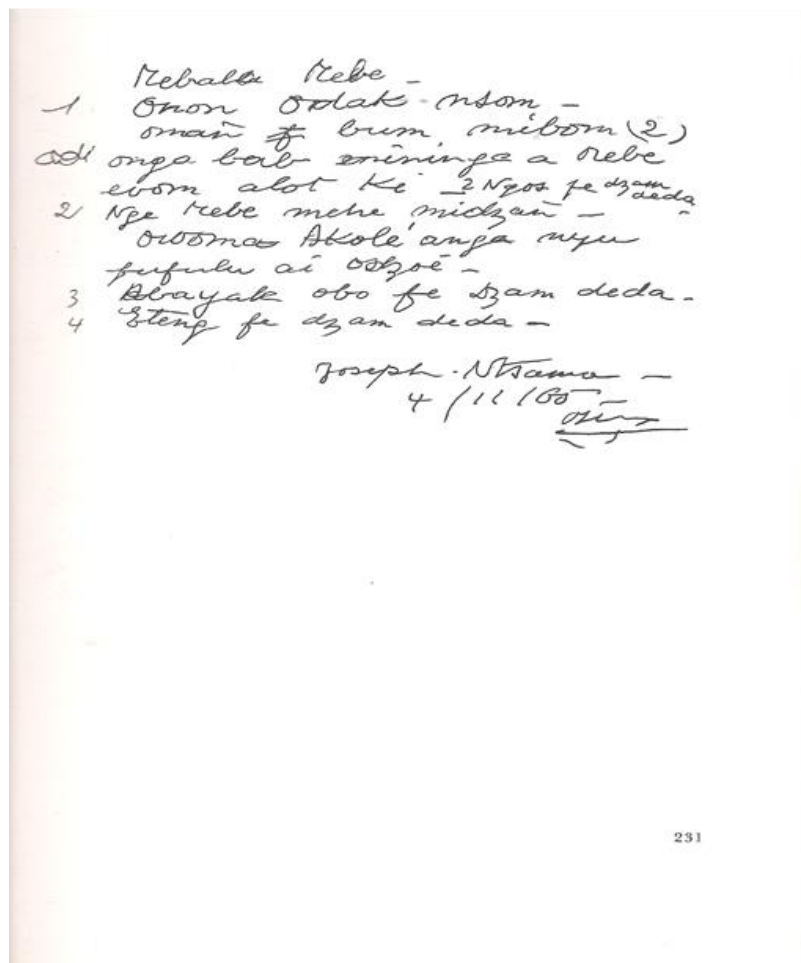 Mebala Mebe -
1 Onon Odak nsom -
oman bum mibom (2)
adi onga bab mininga a Mebe
evom alot ki 2 Ngos fe dzam deda -
2 Nge Mebe mehe midzañ -
Owoma Akolé anga nyu
fufulu ai Odzoé -
3 Abayak obo fe dzam deda -
4 Eteng fe dzam deda -
Joseph - Ntsama -
4/11/65 -
231